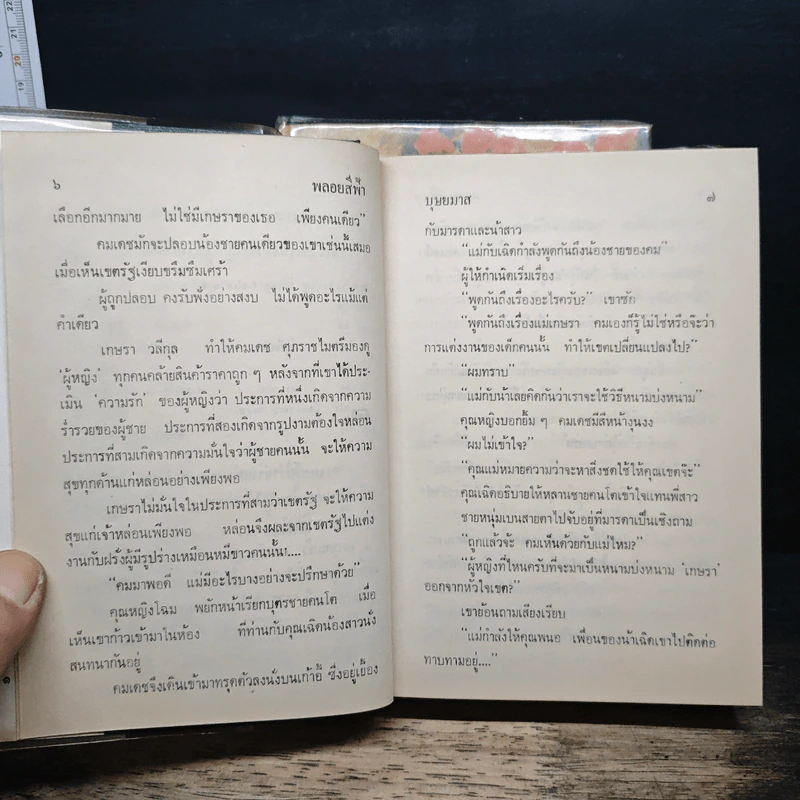 ๖ พลอยสีฟ้า
เลือกอีกมากมาย ไม่ใช่มีเกษราของเธอ เพียงคนเดียว”
คมเดชมักจะปลอบน้องชายคนเดียวของเขาเช่นนี้เสมอ
เมื่อเห็นเขตรัฐเงียบขรึมซึมเศร้า
ผู้ถูกปลอบ คงรับฟังอย่างสงบ ไม่ได้พูดอะไรแม้แต่
คำเดียว
เกษรา วลีกุล ทำให้คมเดช ศุภราชไมตรีมองดู
‘ผู้หญิง’ ทุกคนคล้ายสินค้าราคาถูก ๆ หลังจากที่เขาได้ประ-
เมิน ‘ความรัก’ ของผู้หญิงว่า ประการที่หนึ่งเกิดจากความ
ร่ำรวยของผู้ชาย ประการที่สองเกิดจากรูปงามต้องใจหล่อน
ประการที่สามเกิดจากความมั่นใจว่าผู้ชายคนนั้น จะให้ความ
สุขทุกด้านแก่หล่อนอย่างเพียงพอ
เกษราไม่มั่นใจในประการที่สามว่าเขตรัฐ จะให้ความ
สุขแก่เจ้าหล่อนเพียงพอ หล่อนจึงผละจากเขตรัฐไปแต่ง
งานกับฝรั่งผู้มีรูปร่างเหมือนหมีขาวคนนั้น!....
“คมมาพอดี แม่มีอะไรบางอย่างจะปรึกษาด้วย”
คุณหญิงโฉม พยักหน้าเรียกบุตรชายคนโต เมื่อ
เห็นเขาก้าวเข้ามาในห้อง ที่ท่านกับคุณเฉิดน้องสาวนั่ง
สนทนากันอยู่
คมเดชจึงเดินเข้ามาทรุดตัวลงนั่งบนเก้าอี้ ซึ่งอยู่เยื้อง
บุษยมาส ๗
กับมารดาและน้าสาว
“แม่กับเฉิดกำลังพูดกันถึงน้องชายของคม”
ผู้ให้กำเนิดเริ่มเรื่อง
“พูดกันถึงเรื่องอะไรครับ?” เขาซัก
“พูดกันถึงเรื่องแม่เกษรา คมเองก็รู้ไม่ใช่หรือจ๊ะว่า
การแต่งงานของเด็กคนนั้น ทำให้เขตเปลี่ยนแปลงไป?”
“ผมทราบ”
“แม่กับน้าเลยคิดกันว่าเราจะใช้วิธีหนามบ่งหนาม”
คุณหญิงบอกยิ้ม ๆ คมเดชมีสีหน้างุนงง
“ผมไม่เข้าใจ?”
“คุณแม่หมายความว่าจะหาสิ่งชดใช้ให้คุณเขตจ๊ะ”
คุณเฉิดอธิบายให้หลานชายคนโตเข้าใจแทนพี่สาว
ชายหนุ่มเบนสายตาไปจับอยู่ที่มารดาเป็นเชิงถาม
“ถูกแล้วจ้ะ คมเห็นด้วยกับแม่ไหม?”
“ผู้หญิงที่ไหนครับที่จะมาเป็นหนามบ่งหนาม ‘เกษรา’
ออกจากหัวใจเขต?”
เขาย้อนถามเสียงเรียบ
“แม่กำลังให้คุณพนอ เพื่อนของน้าเฉิดเขาไปติดต่อ
ทาบทามอยู่....”
18 19 20